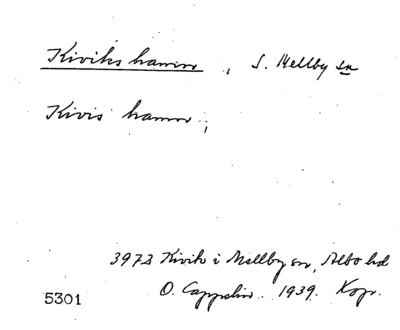 Kiviks hamn, S. Mellby sn
Kivis hamn;
3973 Kivik i Mellby sn, Albo hd
5301 O. Cappelin. 1939. Kop.